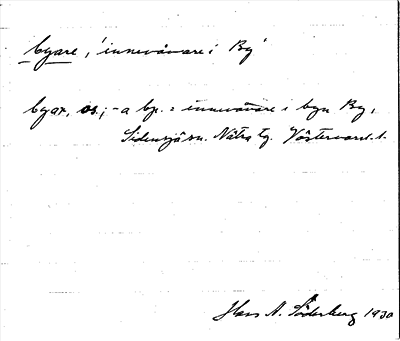 byare, 'innevånare i By'
byar, os; -a bp. = innevånare i byn By,
Sidensjö sn. Nätra tg. Västernorrl. l.
Hans A. Söderberg 1930